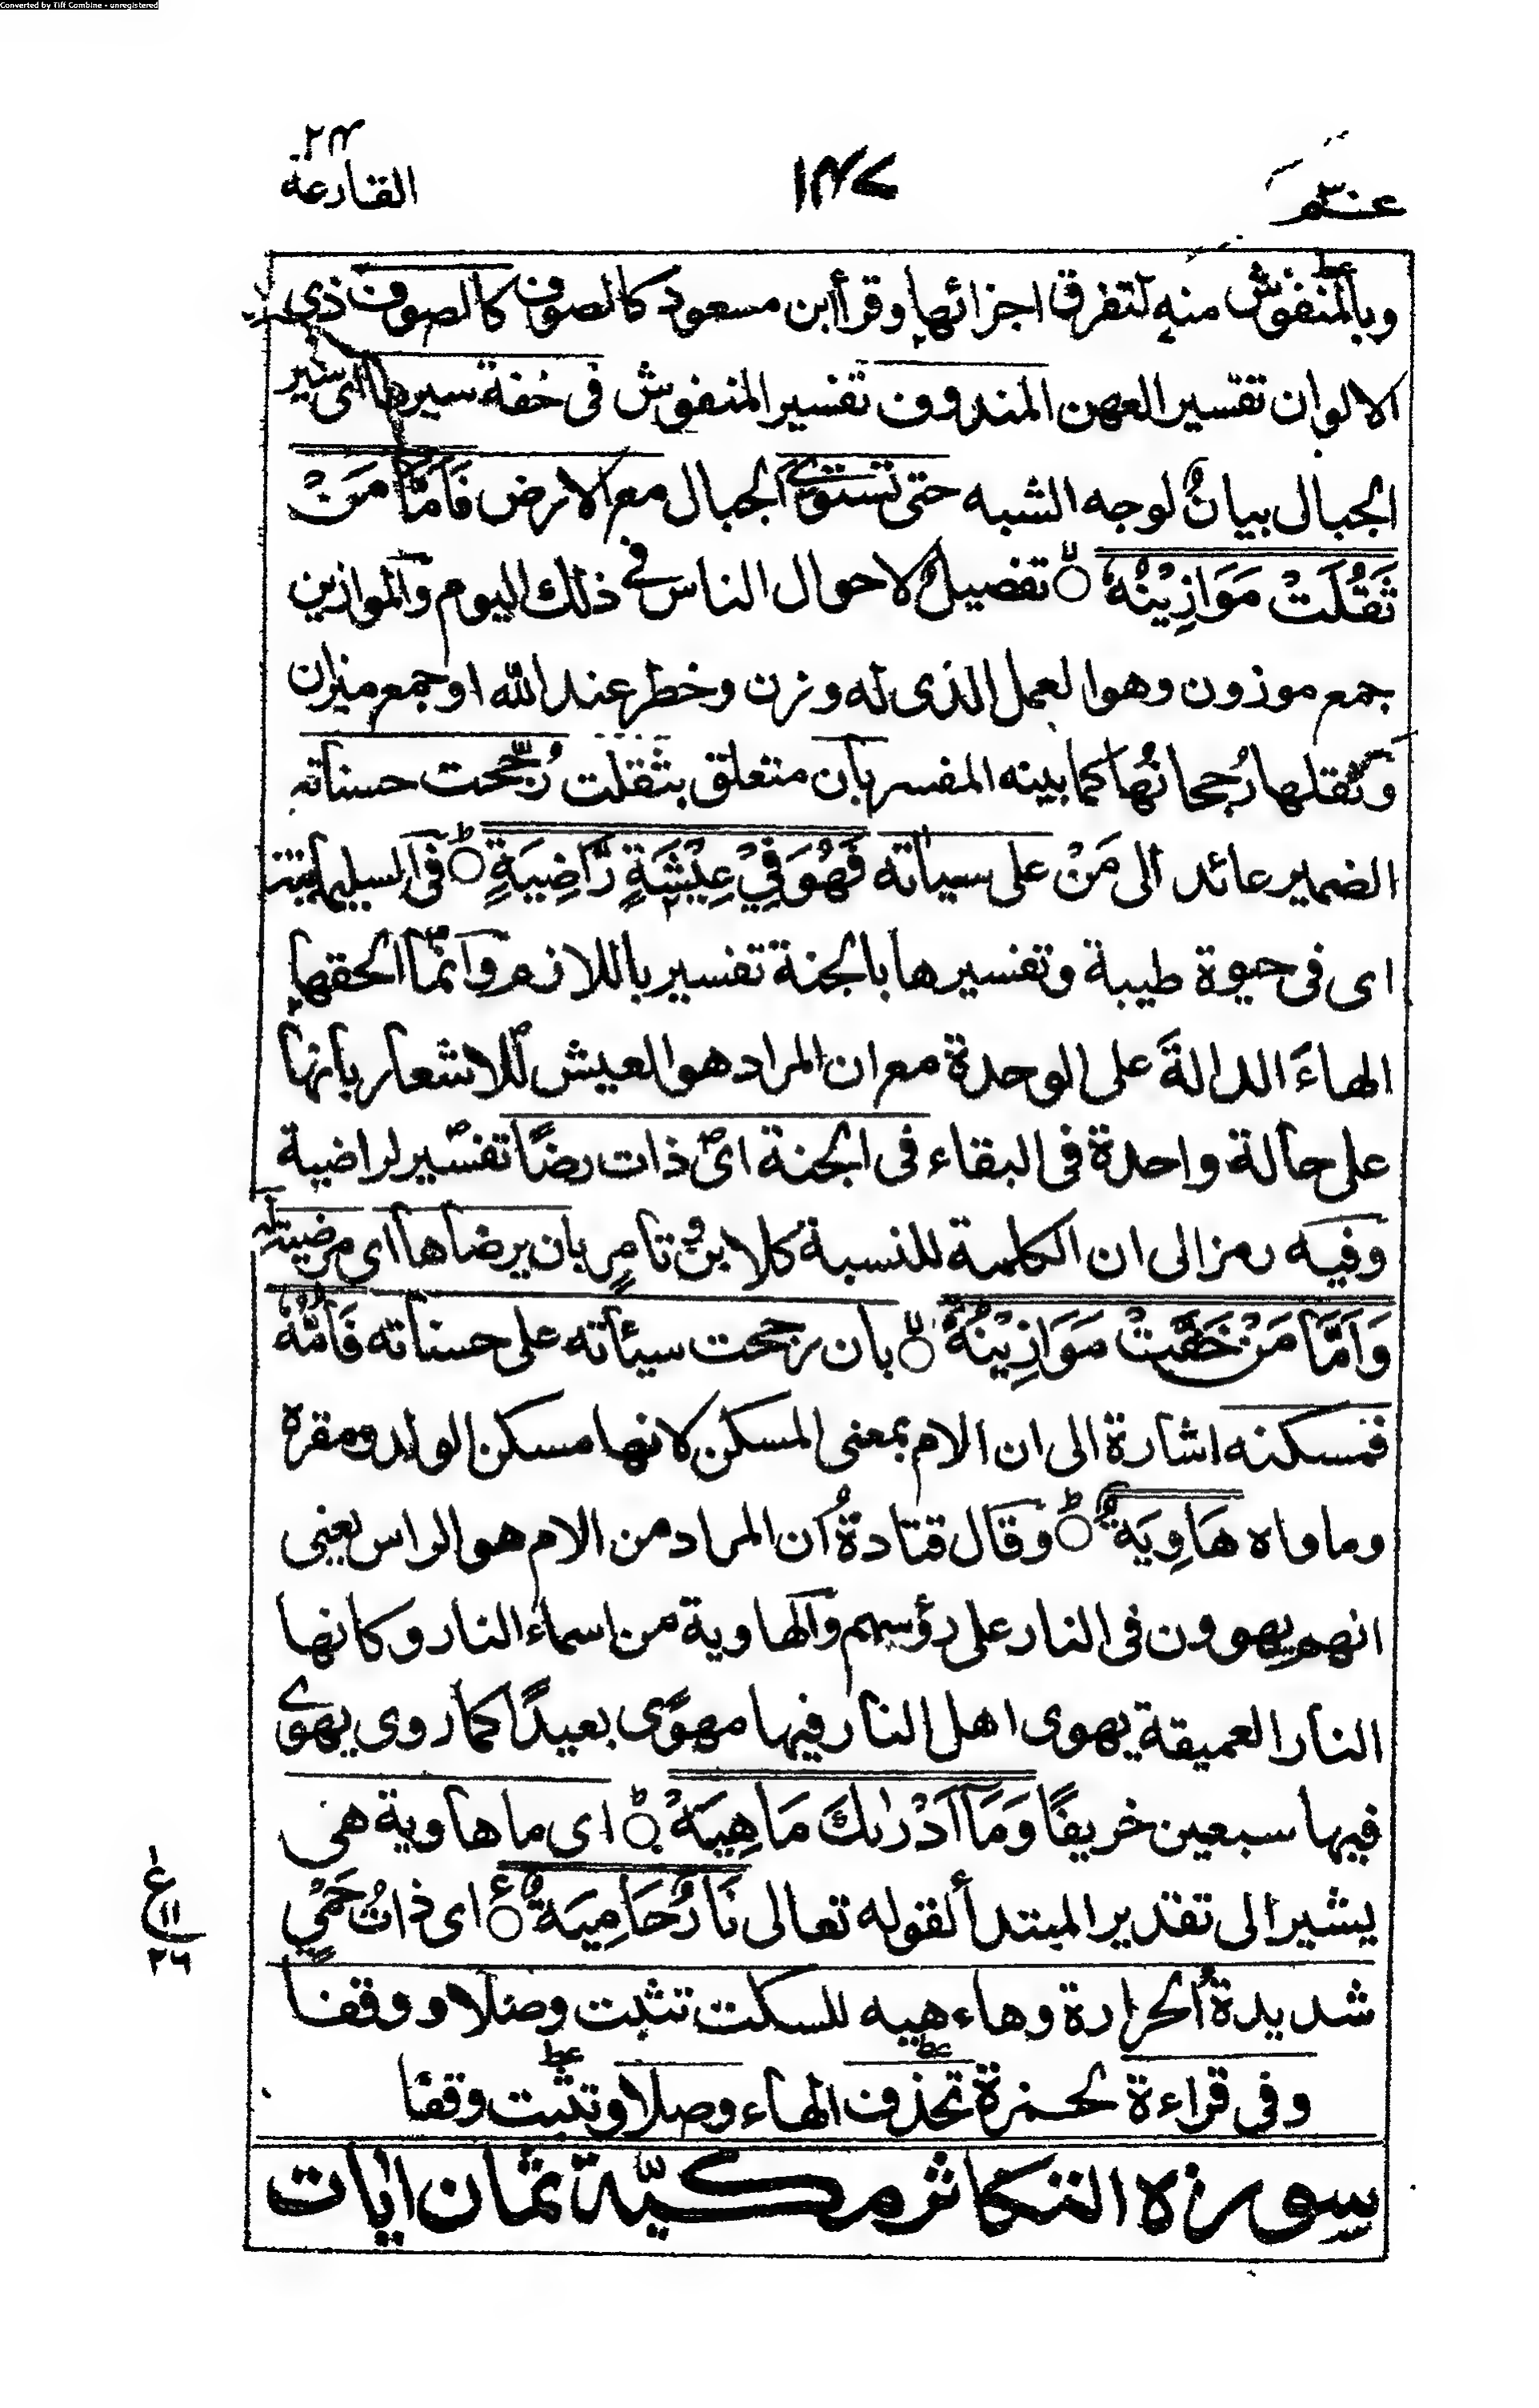 Converted by Tiff Combine - unregistered
عم ٣٠
١٤٧
القارعة
وبالمنفوش منه لتفرق اجزائها وقرأ ابن مسعود كالصوف كالصوف ذي
الالوان تفسير العهن المندوف تفسير المنفوش فى خفة سيرها اى سير
الجبال بيانٌ لوجه الشبه حتى تستوي الجبال مع الارض فَاَمَّا مَنْ
ثَقُلَتْ مَوَازِيْنُهٗ تفصيلٌ لاحوال الناس في ذلك اليوم والموازين
جمع موزون وهو العمل الذى له وزن وخطر عند الله او جمع ميزان
وثقلها رُجحانُها كما بينه المفسر بان متعلق بثقلت رُجّحت حسناته
الضمير عائد الى مَنْ على سياته فَهُوَ فِيْ عِيْشَةٍ رَّاضِيَةٍ فى
اى فى حيوة طيبة وتفسيرها بالجنة تفسير باللازم وانّما الحقها
الهاءَ الدالةَ على الوحدة مع ان المراد هو العيش للاشعار بانها
على حالة واحدة فى البقاء فى الجنة اى ذات رضًا تفسير لراضية
وفيه رمز الى ان الكلمة للنسبة كلابنٍ وتامرٍ بان يرضاها اى مرضية له
وَاَمَّا مَنْ خَفَّتْ مَوَازِيْنُهٗ بان رجحت سيئاته على حسناته فَاُمُّهٗ
فمسكنه اشارة الى ان الام بمعنى المسكن لانها مسكن الولد ومقره
وماواه هَاوِيَةٌ وقال قتادةُ ان المراد من الام هو الراس يعنى
انهم يهوون فى النار على رؤسهم والهاوية من اسماء النار وكانها
النار العميقة يهوى اهل النار فيها مهوًى بعيدًا كما روى يهوي
فيها سبعين خريفًا وَمَا اَدْرٰىكَ مَاهِيَهْ اى ما هاوية هى
يشير الى تقدير المبتدأ لقوله تعالى نَارٌ حَامِيَةٌ اى ذاتُ حَمْيٍ
ع
١١
٢٦
شديدةُ الحرارة وهاء هيه للسكت تثبت وصلا ووقفا
وفى قراءة لحمزة تحذف الهاء وصلا وتثبت وقفا
سورة التكاثر مكيّة ثمان ايات